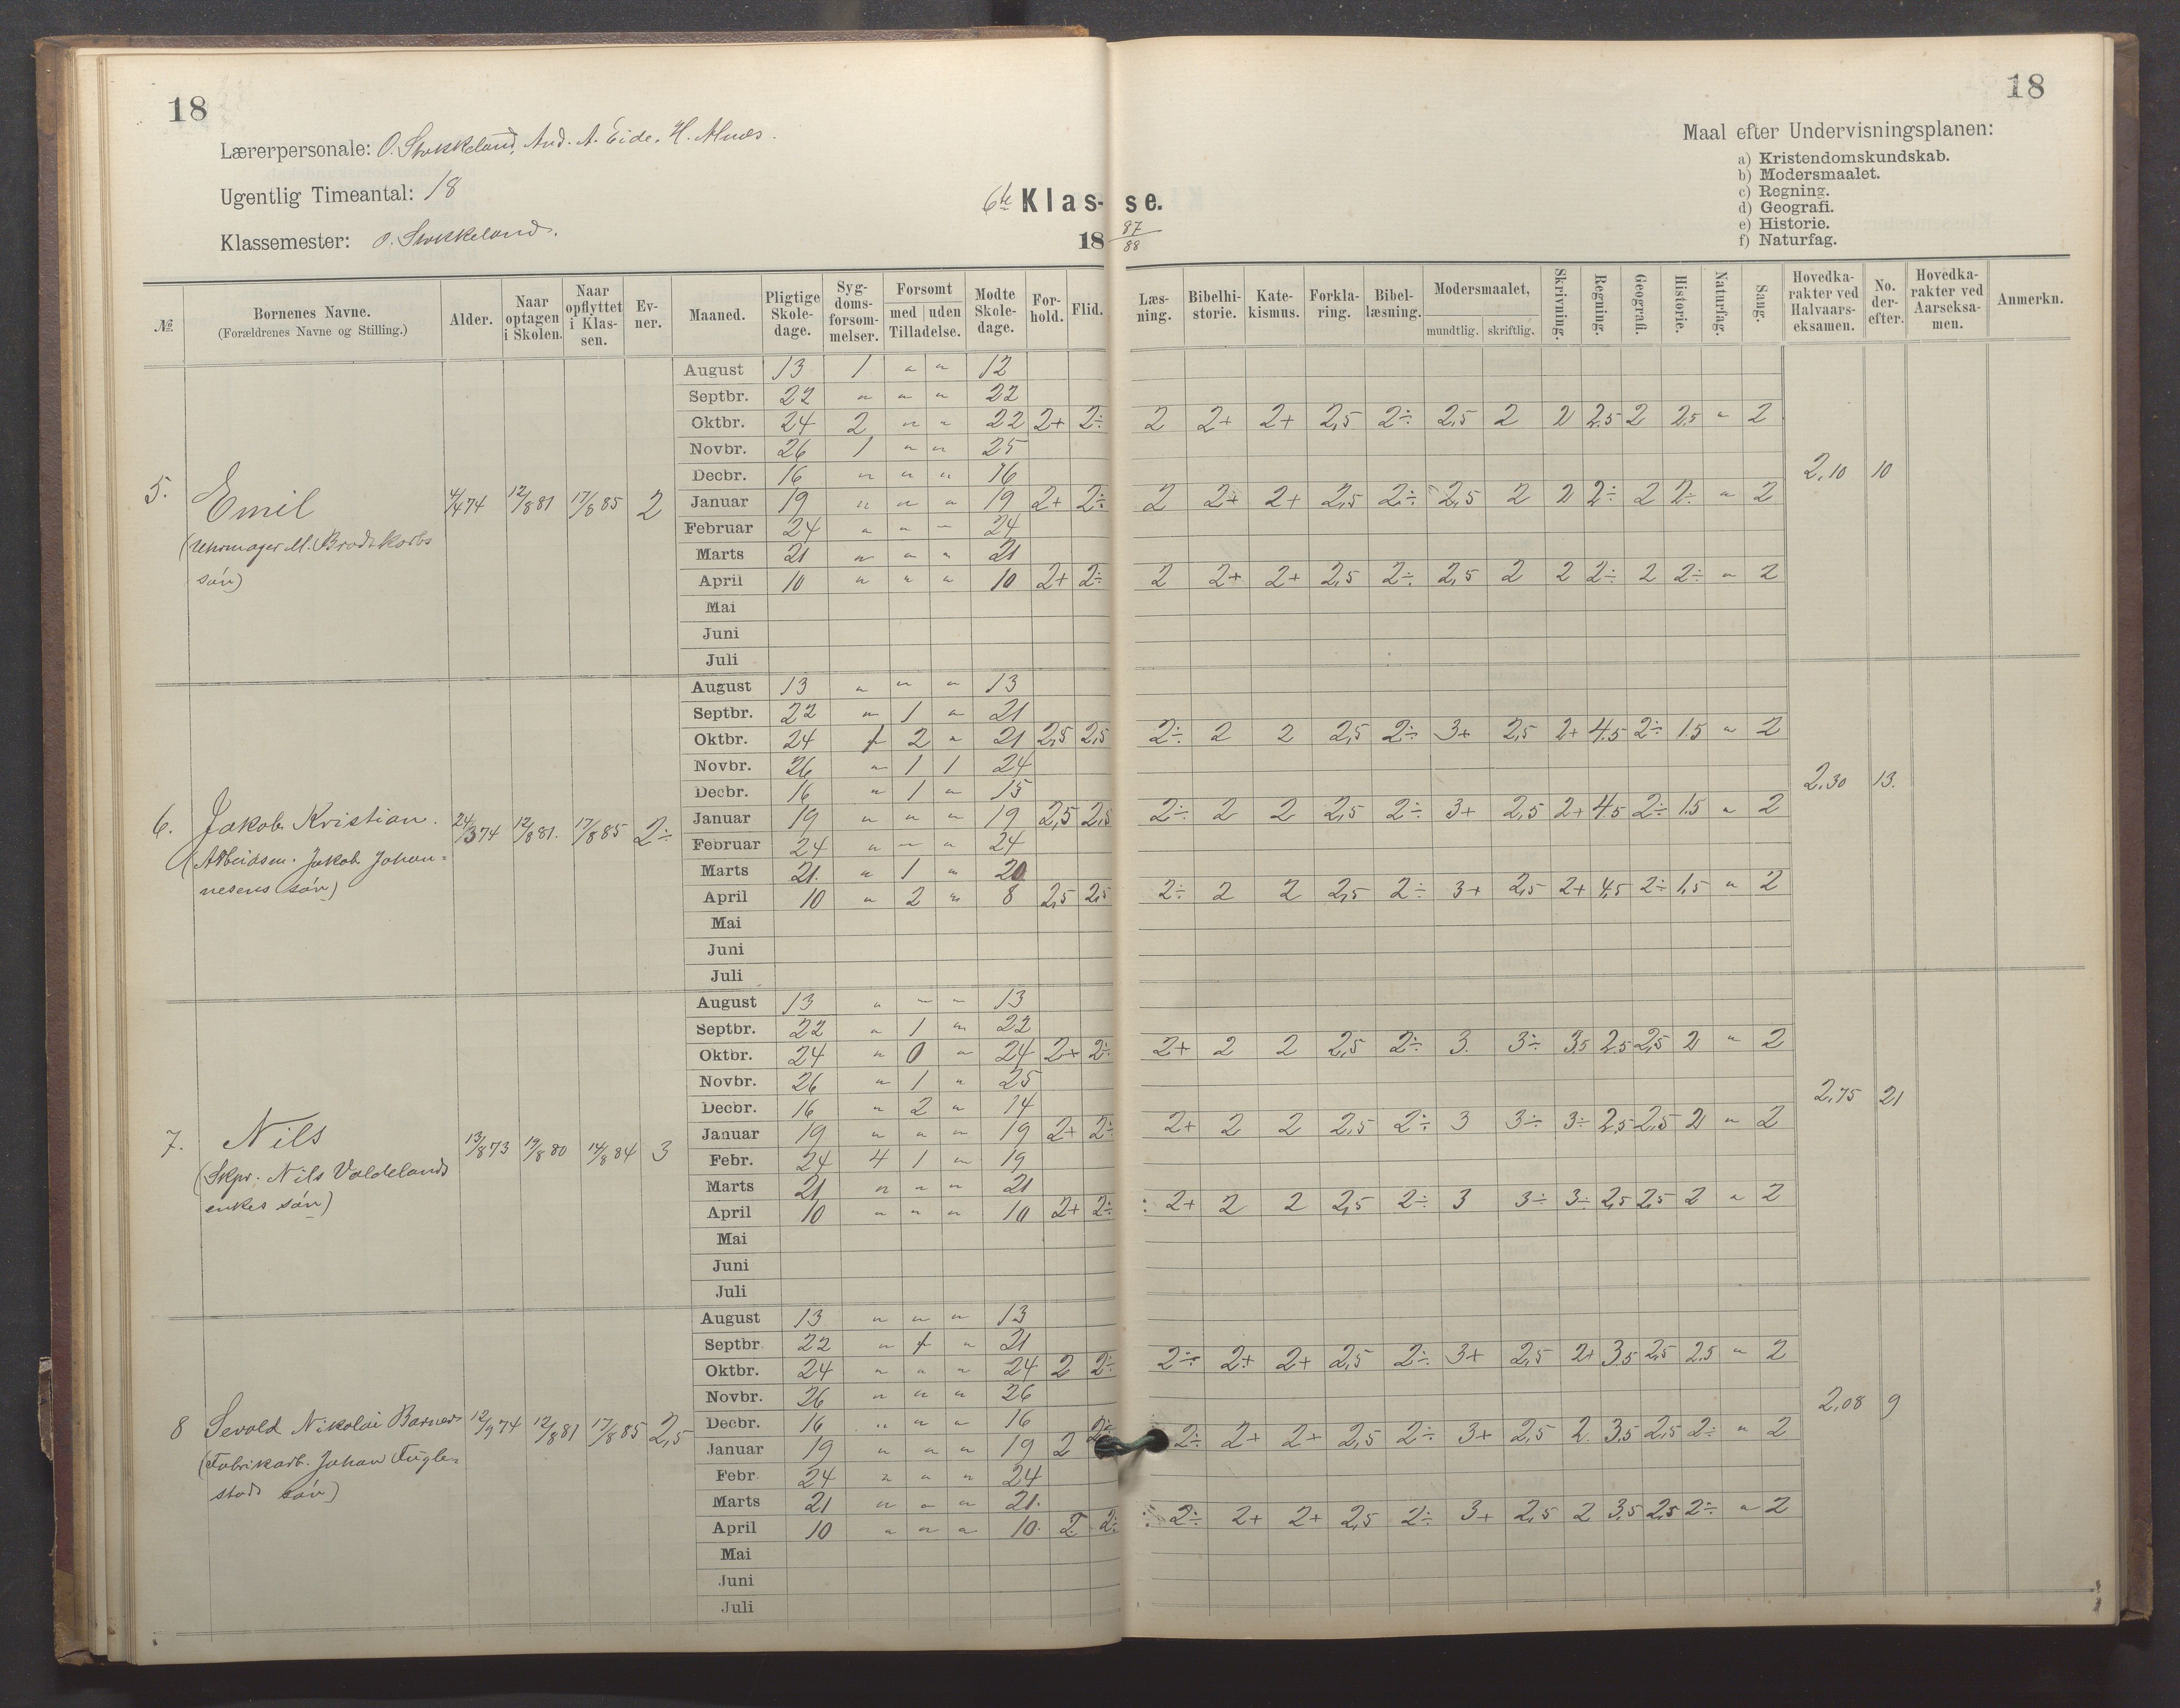 18
18
Lærerpersonale: O. Stokkeland, And. A. Eide. H. Alnæs.
Ugentlig Timeantal: 18
Klassemester: O. Stokkeland.
6te Klas- se.
18 87/88
Maal efter Undervisningsplanen:
a) Kristendomskundskab.
b) Modersmaalet.
c) Regning.
d) Geografi.
e) Historie.
f) Naturfag.
№ Børnenes Navne. (Forældrenes Navne og Stilling.) Alder. Naar optagen i Skolen. Naar opflyttet i Klassen. Evner. Maaned. Pligtige Skoledage. Sygdomsforsommelser. Forsømt med uden Tilladelse. Mødte Skoledage. Forhold. Flid. Læsning. Bibelhistorie. Katekismus. Forklaring. Bibellæsning. Modersmaalet, mundtlig. skriftlig. Skrivning. Regning. Geografi. Historie. Naturfag. Sang. Hovedkarakter ved Halvaarseksamen. No. derefter. Hovedkarakter ved Aarseksamen. Anmerkn.
5. Emil
(Uhrmager M. Brodtkorbs
søn)
4/4 74 12/8 81 17/8 85 2
August 13 1 " " 12
Septbr. 22 " " " 22
Oktbr. 24 2 " " 22 2+ 2÷ 2 2+ 2+ 2,5 2÷ 2,5 2 2 2.5 2 2.5 " 2
Novbr. 26 1 " " 25
Decbr. 16 " " " 16
2,10 10
Januar 19 " " " 19 2+ 2÷ 2 2+ 2+ 2,5 2÷ 2,5 2 2 2÷ 2 2÷ " 2
Februar 24 " " " 24
Marts 21 " " " 21
April 10 " " " 10 2+ 2÷ 2 2+ 2+ 2,5 2÷ 2,5 2 2 2÷ 2 2÷ " 2
Mai
Juni
Juli
6. Jakob Kristian.
(Arbeidsm. Jakob Johan=
nesens søn)
24/3 74 12/8 81. 17/8 85 2÷
August 13 " " " 13
Septbr. 22 " 1 " 21
Oktbr. 24 1 2 " 21 2,5 2,5 2÷ 2 2 2,5 2÷ 3+ 2,5 2+ 4.5 2÷ 1.5 " 2
Novbr. 26 " 1 1 24
Decbr. 16 " 1 " 15
2,30 13.
Januar 19 " " " 19 2,5 2,5 2÷ 2 2 2,5 2÷ 3+ 2,5 2+ 4.5 2÷ 1.5 " 2
Februar 24 " " " 24
Marts 21. " 1 " 20
April 10 " 2 " 8 2,5 2,5 2÷ 2 2 2,5 2÷ 3+ 2,5 2+ 4,5 2÷ 1,5 " 2
Mai
Juni
Juli
7. Nils
(Skpr. Nils Valdelands
enkes søn)
13/8 73 19/8 80 14/8 84 3
August 13 " " " 13
Septbr. 22 " 1 " 22
Oktbr. 24 " 0 " 24 2+ 2÷ 2+ 2 2 2,5 2÷ 3. 3÷ 3.5 2.5 2,5 2 " 2
Novbr. 26 " 1 " 25
Decbr. 16 " 2 " 14
2,75 21
Januar 19 " " " 19 2+ 2÷ 2+ 2 2 2,5 2÷ 3 3÷ 3÷ 2,5 2,5 2 " 2
Febr. 24 4 1 " 19
Marts 21 " " " 21
April 10 " " " 10 2+ 2÷ 2+ 2 2 2,5 2÷ 3 3÷ 3÷ 2,5 2,5 2 " 2
Mai
Juni
Juli
8 Sevald Nikolai Barner
(Fabrikarb. Johan Fugle=
stads søn)
12/9 74 12/8 81 17/8 85 2,5
August 13 " " " 13
Septbr 22 " 1 " 21
Oktbr. 24 " " " 24 2 2÷ 2÷ 2+ 2+ 2,5 2÷ 3+ 2,5 2+ 3.5 2,5 2.5 " 2
Novbr. 26 " " " 26
Decbr. 16 " " " 16
2,08 9
Januar 19 " " " 19 2 2÷ 2÷ 2+ 2+ 2,5 2÷ 3+ 2,5 2. 3.5 2,5 2÷ " 2
Febr 24 " " " 24
Marts 21 " " " 21.
April 10 " " " 10. 2 2÷ 2÷ 2+ 2+ 2,5 2÷ 3+ 2,5 2 3.5 2,5 2÷ " 2
Mai
Juni
Juli